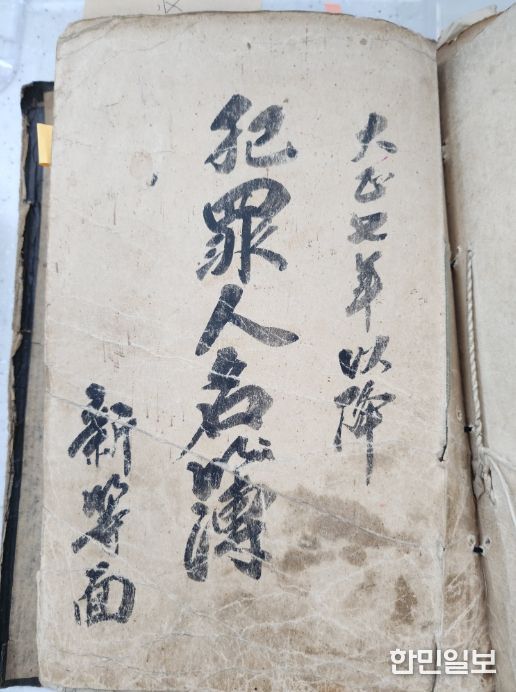 大正七年以降
犯罪人名簿
新等面
한민일보